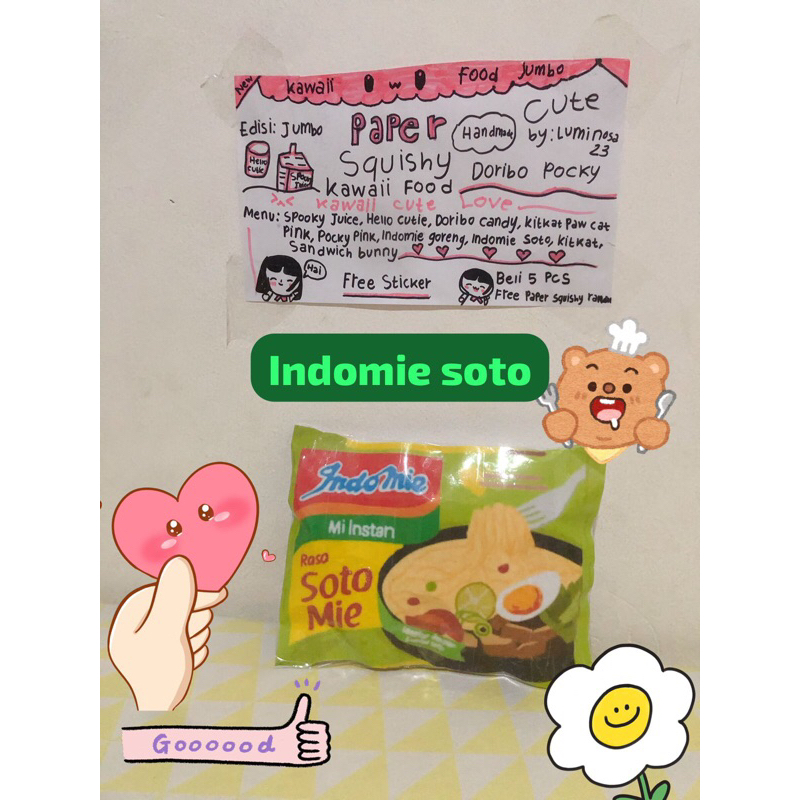 New
kawaii
Food Jumbo
Edisi: Jumbo
Paper
Squishy
Kawaii Food
Handmade
Cute
by: Luminosa
23
Doribo Pocky
Hello
cutie
Spooky
Juice
kawaii cute Love
Menu: Spooky Juice, Hello cutie, Doribo candy, kitkat Paw cat
Pink, Pocky Pink, Indomie goreng, Indomie Soto, kitkat,
Sandwich bunny
Hai
Free Sticker
Beli 5 PCS
Free Paper squishy random
Indomie soto
Indomie
Mi Instan
Rasa
Soto
Mie
Goooood